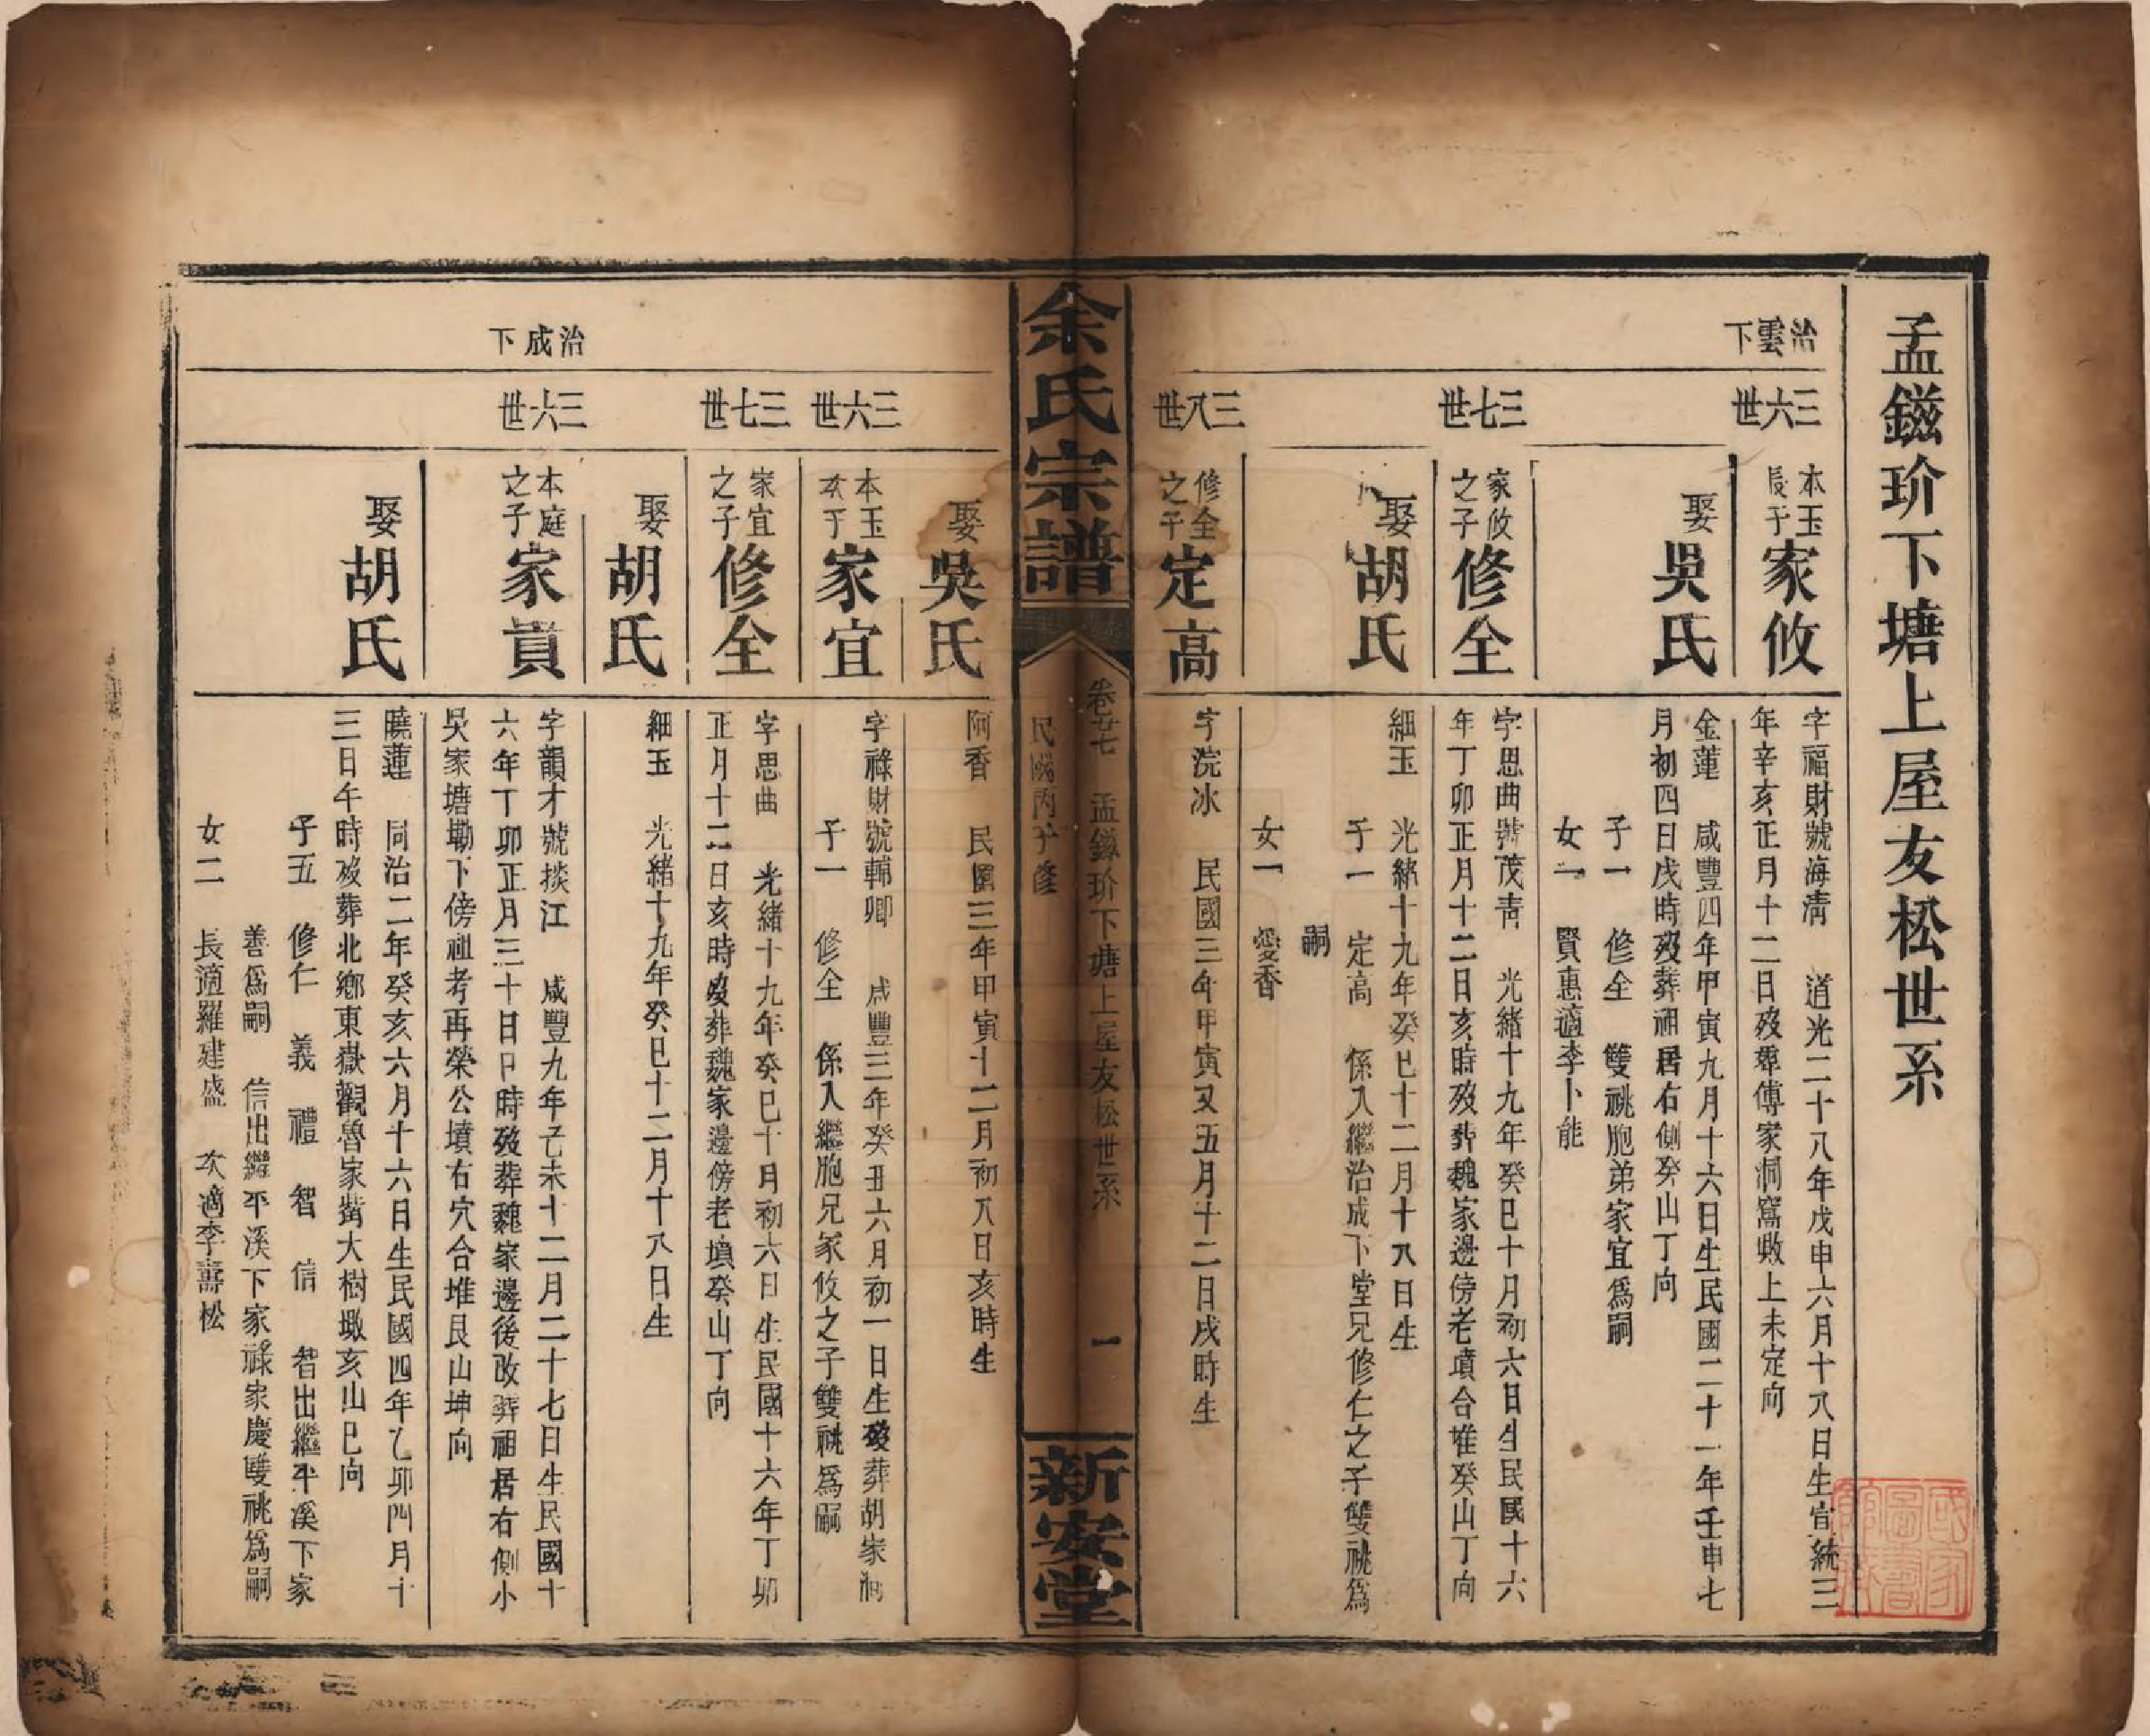 孟鎡玠下塘上屋友松世系
治雲下
三六世
本玉長子家攸
字福財號海淸 道光二十八年戊申六月十八日生宣統三
年辛亥正月十二日歿葬傅家洞窩墈上未定向
娶吳氏
金蓮 咸豐四年甲寅九月十六日生民國二十一年壬申七
月初四日戌時歿葬祖居右側癸山丁向
子一 修全 雙祧胞弟家宜爲嗣
女一 賢惠適李卜能
三七世
家攸之子修全
字思曲號茂靑 光緒十九年癸巳十月初六日生民國十六
年丁卯正月十二日亥時歿葬魏家邊傍老墳合堆癸山丁向
娶胡氏
細玉 光緒十九年癸巳十二月十八日生
子一 定高 係入繼治成下堂兄修仁之子雙祧爲
嗣
女一 愛香
三八世
修全之子定高
字浣冰 民國三年甲寅又五月十二日戌時生
余氏宗譜
卷廿七 孟鎡玠下塘上屋友松世系 一
民國丙子修
新安堂
娶吳氏
阿香 民國三年甲寅十二月初八日亥時生
三六世
本玉次子家宜
字祿財號輔卿 咸豐三年癸丑六月初一日生歿葬胡家洞
子一 修全 係入繼胞兄家攸之子雙祧爲嗣
三七世
家宜之子修全
字思曲 光緒十九年癸巳十月初六日生民國十六年丁卯
正月十二日亥時歿葬魏家邊傍老墳癸山丁向
娶胡氏
細玉 光緒十九年癸巳十二月十八日生
治成下
三六世
本庭之子家貢
字韻才號掞江 咸豐九年己未十二月二十七日生民國十
六年丁卯正月三十日卯時歿葬魏家邊後改葬祖居右側小
吳家塘墈下傍祖考再榮公墳右穴合堆艮山坤向
娶胡氏
曉蓮 同治二年癸亥六月十六日生民國四年乙卯四月十
三日午時歿葬北鄉東嶽觀魯家嵴大樹墩亥山巳向
子五 修仁 義 禮 智 信 智出繼平溪下家
善爲嗣 信出繼平溪下家祿家慶雙祧爲嗣
女二 長適羅建盛 次適李壽松
國家圖書館藏